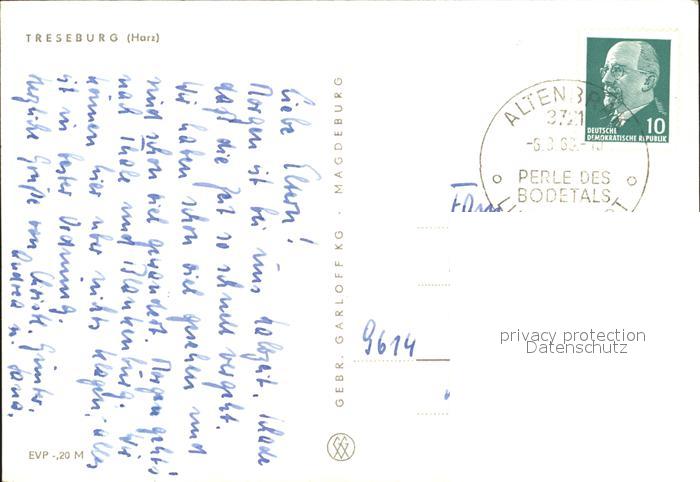 TRESEBURG (Harz)
Liebe Eltern!
Morgen ist bei uns Halbzeit. Schade
daß die Zeit so schnell vergeht.
Wir haben schon viel gesehen und
sind schon viel gewandert. Morgen geht's
nach Thale und Blankenburg. Wir
können hier über nichts klagen, alles
ist in bester Ordnung.
Herzliche Grüße von Christl, Günter,
Andrea u. Jana.
EVP -,20 M
GEBR. GARLOFF KG · MAGDEBURG
10
DEUTSCHE
DEMOKRATISCHE REPUBLIK
PERLE DES
BODETALS
Fam
9614
privacy protection
Datenschutz